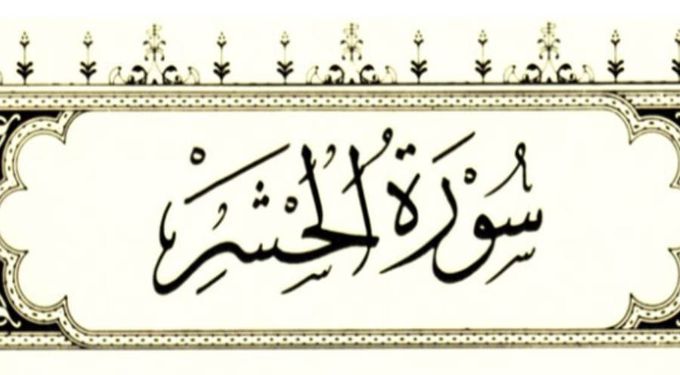 سُوْرَةُ الْحَشْرِ